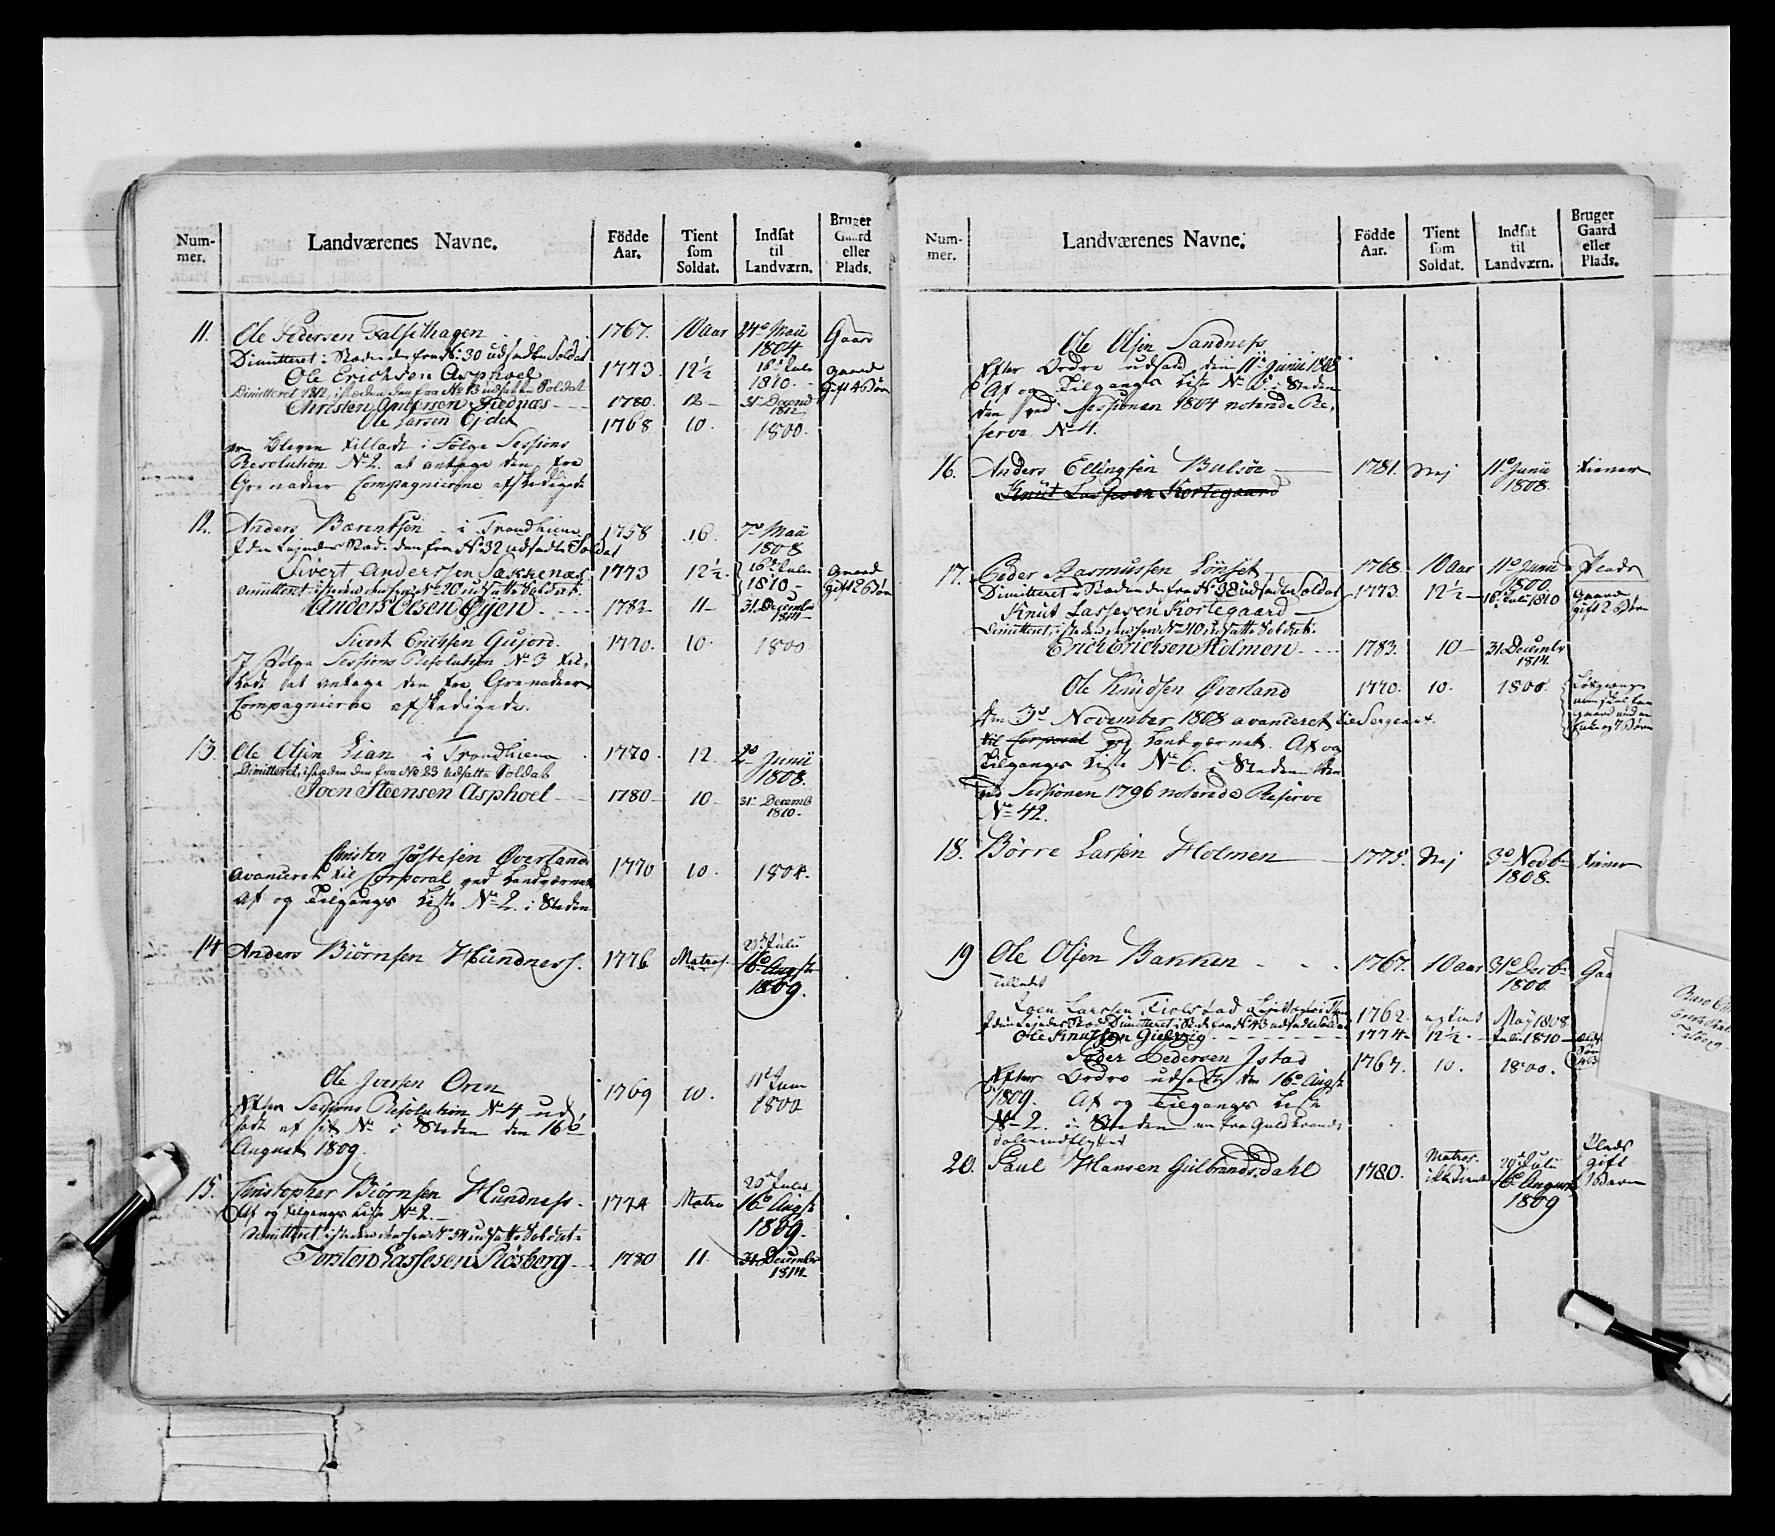 Num-
mer.
Landværenes Navne.
Födde
Aar.
Tient
som
Soldat.
Indsat
til
Landværn.
Bruger
Gaard
eller
Plads.
11. Ole Pedersen Falsethagen 1767. 10 aar 24de Maii 1804 Gaard
Dimitteret i Steden den fra No 30 udsadte Soldat
Ole Erichsen Asphoel 1773. 12½ 16de Julii 1810. gaard Gift 4 Børn
Dimitteret 1812 isteden den fra No 13 udsatte Soldat
Christen Andersen Fiednæs 1780. 12 31te Decemb 1812
Ole Larsen Ejdet 1768 10. 1800.
er bleven tilladt i Følge Sessions
Resolution No 2. at antage den fra
Grenadeer Compagnierne afskedigede
12. Anders Bærentsen i Trondhiem 1758 16. 7de Maii 1808
den fra No 32 udsadte Soldat
Sivert Anderssen Sakkenæs 1773 12½. 16de Julii 1810 gaard gift 2 Børn
dimitteret isteden den fra No 20 udsatte Soldat
Anders Olsen Øyen 1782 11 31 December 1814
Sivert Erichsen Gujord. 1770. 10. 1800
I Følge Sessions Resolution No 3 til-
ladt at antage den fra Grenadeer
Compagnierne afskedigede.
13. Ole Olsen Lian i Trondhiem 1770. 12. 2de Junii 1808.
Dimitteret, isteden den fra No 23 udsatte Soldat
Joen Steensen Asphoel 1780 10. 31te Decemb 1810.
Christen Jostesen Øverland 1770 10. 1804.
avanceret til Corporal ved Landværnet
Af og Tilgangs Liste No 2. i Steden
14 Anders Biørnsen Hundness. 1776 Matros. 20de Julii 16de Augst 1809.
Ole Iversen Oren 1769 10. 11te Junii 1800
Efter Sessions Resolution No 4 ud-
sadt af sit No i Steden den 16de
August 1809.
15. Christopher Biørnsen Hundness. 1774 Matro 20de Julii 16de Augst 1809.
Af og tilgangs Liste No 2.
Dimitteret isteden den fra No 34 udsatte Soldat
Torsten Lassesen Røsberg 1780 11. 31 December 1814
Num-
mer.
Landværenes Navne.
Födde
Aar.
Tient
som
Soldat.
Indsat
til
Landværn.
Bruger
Gaard
eller
Plads.
Ole Olsen Sandness
Efter Ordre udsadt den 11te Junii 1808
Af og Tilgangs Liste No 5 i Steden
den ved Sessionen 1804 noterede Re-
serve No 4.
16. Anders Ellingsen Bulsøe 1781. Nej 11te Junii 1808. tiener
Knut Lassesen Kortegaard
17. Peder Rasmussen Lønset 1768 10 Aar 11te Junii 1800. Plads
Dimitteret i Steden den fra No 38 udsadte Soldat
Knut Lassesen Kortegaard 1773 12½ 16de Julii 1810 gaard gift 2 Børn
Dimitteret, isteden den fra No 40 udsatte Soldat
Erich Erichsen Holmen 1783. 10 31 December 1814.
Ole Knudsen Øverland 1770. 10. 1800.
Den 3de November 1808 avanceret til Sergeant.
til Corporal ved Landværnet. Af og
Tilgangs Liste No 6. i Steden den
ved Sessionen 1796 noterede Reserve
No 42.
18. Børre Larsen Holmen 1775. Nej 3de Novbr 1808. tiener
19 Ole Olsen Bakken 1767. 10 aar 31te Decbr 1800. Gaa
tilladt
Joen Larsen Fiolstad 1762. Maij 1808
Dimitteret i Steden fra No 43 udsadte Soldat
Ole Knutsen Gielvig 1774 12½ Julii 1810
Peder Pedersen Istad 1767. 10. 1800.
Efter Ordre udsadt den 16de Augst
1809. Af og Tilgangs Liste
No 2. i Steden en fra Guldbrands-
dalen udflyttet
20. Paul Hansen Gulbrandsdahl 1780. Matros. ikke tient 20de Julii 16de August 1809 Plads gift 1 Barn